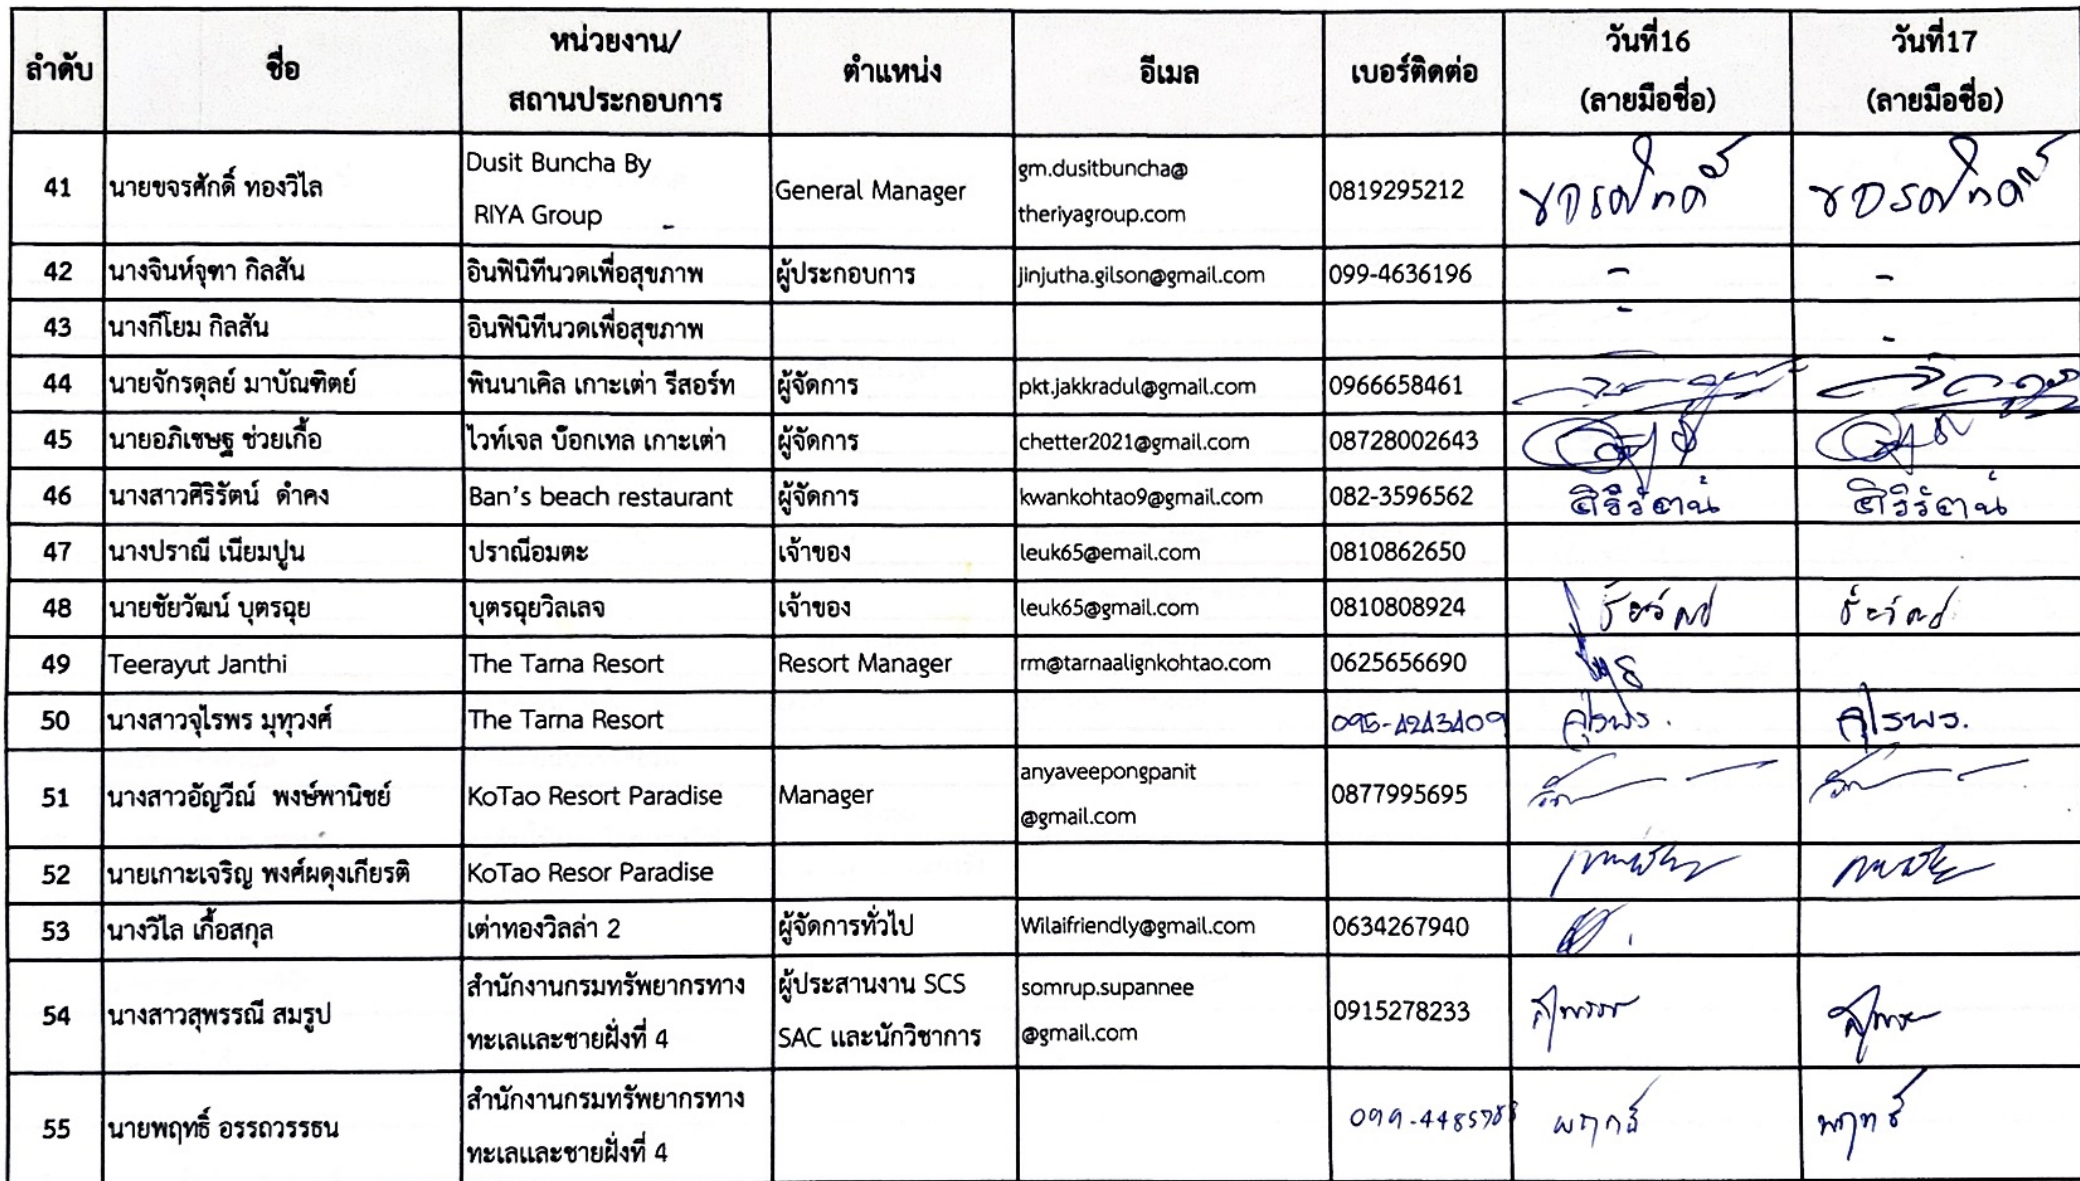 ลำดับ ชื่อ หน่วยงาน/ ตำแหน่ง อีเมล เบอร์ติดต่อ วันที่16 วันที่17
สถานประกอบการ (ลายมือชื่อ) (ลายมือชื่อ)
41 นายขจรศักดิ์ ทองวิไล Dusit Buncha By General Manager gm.dusitbuncha@ 0819295212 ขจรศักดิ์ ขจรศักดิ์
RIYA Group - theriyagroup.com
42 นางจินห์จุฑา กิลสัน อินฟินิทีนวดเพื่อสุขภาพ ผู้ประกอบการ jinjutha.gilson@gmail.com 099-4636196 - -
43 นางกีโยม กิลสัน อินฟินิทีนวดเพื่อสุขภาพ - -
44 นายจักรดุลย์ มาบัณฑิตย์ พินนาเคิล เกาะเต่า รีสอร์ท ผู้จัดการ pkt.jakkradul@gmail.com 0966658461
45 นายอภิเชษฐ ช่วยเกื้อ ไวท์เจล บ๊อกเทล เกาะเต่า ผู้จัดการ chetter2021@gmail.com 08728002643
46 นางสาวศิริรัตน์ ดำคง Ban's beach restaurant ผู้จัดการ kwankohtao9@gmail.com 082-3596562 ศิริรัตน์ ศิริรัตน์
47 นางปราณี เนียมปูน ปราณีอมตะ เจ้าของ leuk65@email.com 0810862650
48 นายชัยวัฒน์ บุตรฉุย บุตรฉุยวิลเลจ เจ้าของ leuk65@gmail.com 0810808924
49 Teerayut Janthi The Tarna Resort Resort Manager rm@tarnaalignkohtao.com 0625656690
50 นางสาวจุไรพร มุทุวงศ์ The Tarna Resort 095-4243409 จุไรพร. จุไรพร.
51 นางสาวอัญวีณ์ พงษ์พานิชย์ KoTao Resort Paradise Manager anyaveepongpanit 0877995695
@gmail.com
52 นายเกาะเจริญ พงศ์ผดุงเกียรติ KoTao Resor Paradise
53 นางวิไล เกื้อสกุล เต่าทองวิลล่า 2 ผู้จัดการทั่วไป Wilaifriendly@gmail.com 0634267940
54 นางสาวสุพรรณี สมรูป สำนักงานกรมทรัพยากรทาง ผู้ประสานงาน SCS somrup.supannee 0915278233
ทะเลและชายฝั่งที่ 4 SAC และนักวิชาการ @gmail.com
55 นายพฤทธิ์ อรรถวรรธน สำนักงานกรมทรัพยากรทาง พฤทธิ์ พฤทธิ์
ทะเลและชายฝั่งที่ 4